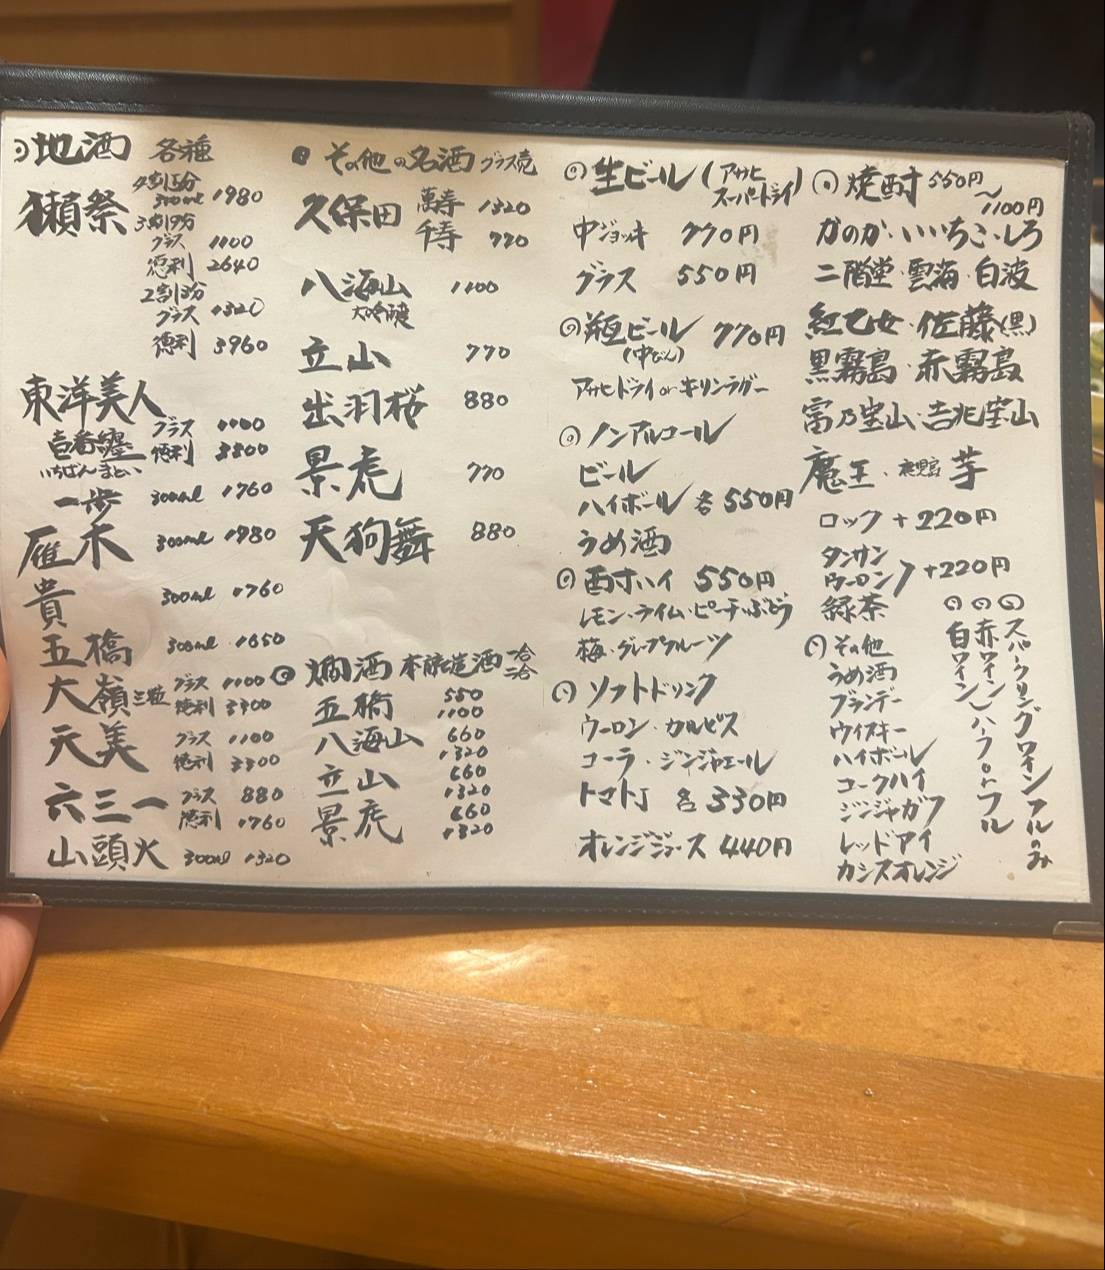 地酒 各種
獺祭 4割5分
300ml 1980
3割9分
グラス 1100
徳利 2640
2割3分
グラス 1320
徳利 3960
東洋美人
壱番纏 グラス 1100
いちばんまとい 徳利 3300
一歩 300ml 1760
雁木 300ml 1980
貴 300ml 1760
五橋 300ml 1650
大嶺 三粒 グラス 1100
徳利 3300
天美 グラス 1100
徳利 3300
六三一 グラス 880
徳利 1760
山頭火 300ml 1320
その他の名酒 グラス売
久保田 萬寿 1320
千寿 770
八海山 1100
大吟醸
立山 770
出羽桜 880
景虎 770
天狗舞 880
燗酒 本醸造酒 一合 二合
五橋 550
1100
八海山 660
1320
立山 660
1320
景虎 660
1320
生ビール(アサヒ
スーパードライ)
中ジョッキ 770円
グラス 550円
瓶ビール 770円
(中びん)
アサヒドライorキリンラガー
ノンアルコール
ビール
ハイボール 各550円
うめ酒
酎ハイ 550円
レモン・ライム・ピーチ・ぶどう
梅・グレープフルーツ
ソフトドリンク
ウーロン・カルピス
コーラ・ジンジャエール
トマトJ 各330円
オレンジジュース 440円
焼酎 550円
〜1100円
かのか・いいちこ・しろ
二階堂・雲海・白波
紅乙女・佐藤(黒)
黒霧島・赤霧島
富乃宝山・吉兆宝山
魔王・鹿児島 芋
ロック +220円
タンサン
ウーロン +220円
緑茶
その他
うめ酒
ブランデー
ウイスキー
ハイボール
コークハイ
ジンジャガフ
レッドアイ
カシスオレンジ
スパークリングワイン フルのみ
赤ワイン
白ワイン
ハーフorフル